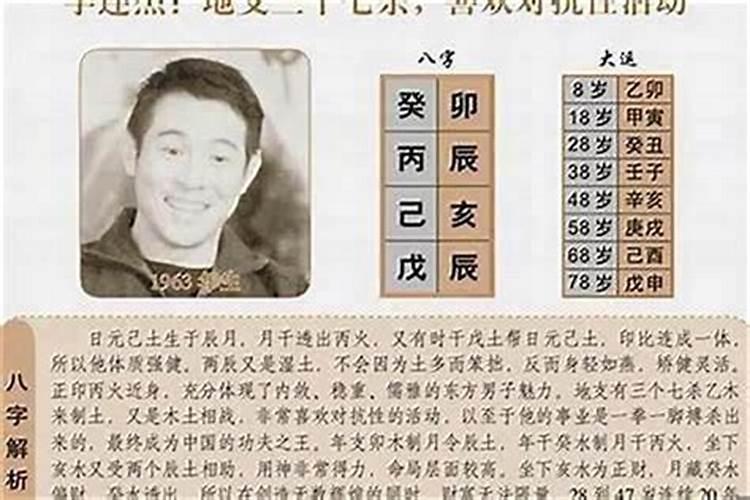 李连杰：地支三个七杀，喜欢对抗性活动
八字
癸 卯
丙 辰
己 亥
戊 辰
大运
8岁 乙卯
18岁 甲寅
28岁 癸丑
38岁 壬子
48岁 辛亥
58岁 庚戌
68岁 己酉
78岁 戊申
1963年生
八字解析
日元己土生于辰月，月干透出丙火，又有时干戊土帮日元己土，印比连成一体，
所以他体质强健。两辰又是湿土，不会因为土多而笨拙，反而身轻如燕，矫健灵活。
正印丙火近身，充分体现了内敛、稳重、儒雅的东方男子魅力。地支有三个七杀乙木
来制土，又是木土相战，非常喜欢对抗性的活动，以至于他的事业是一拳一脚搏杀出
来的，最终成为中国的功夫之王。年支卯木制月令辰土，年干癸水制月干丙火，坐下
亥水又受两个辰土相助，用神非常得力，命局层面较高。坐下亥水为正财，月藏癸水
偏财，癸水透出，所以在创造无数辉煌的同时，财富无法限量，28到47岁连续20年